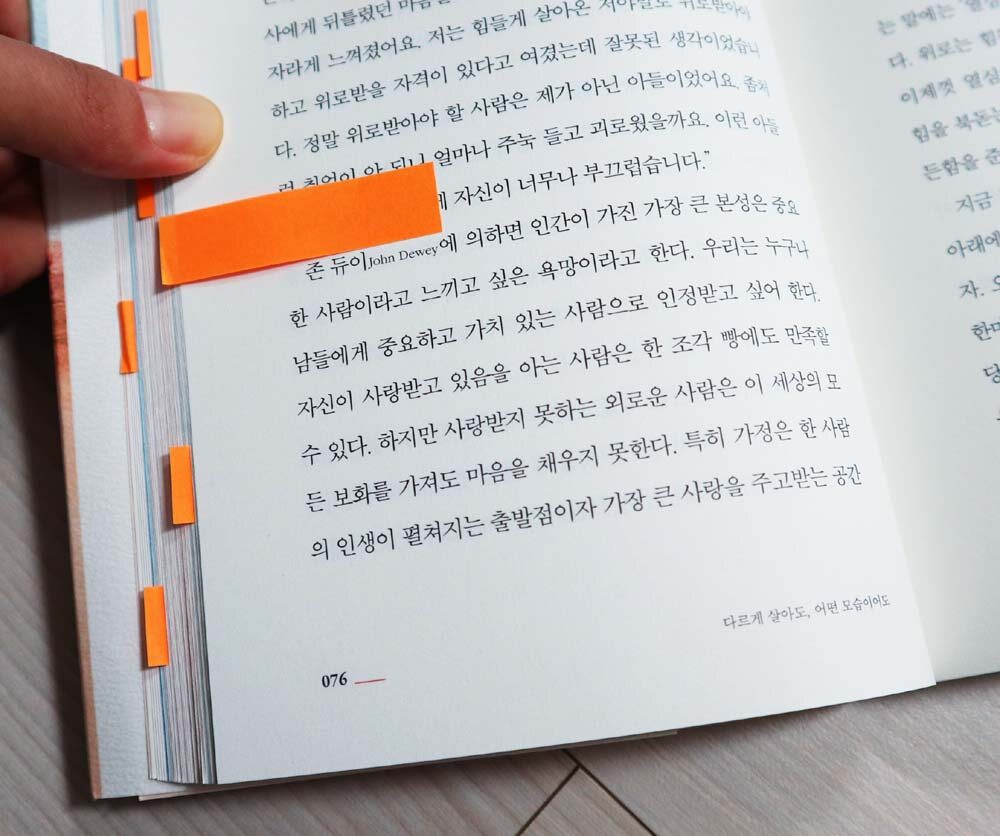 사에게 뒤틀렸던 마음을
자라게 느껴졌어요. 저는 힘들게 살아온 저야말로 위로받아야
하고 위로받을 자격이 있다고 여겼는데 잘못된 생각이었습니
다. 정말 위로받아야 할 사람은 제가 아닌 아들이었어요. 좀처
럼 취업이 안 되니 얼마나 주눅 들고 괴로웠을까요. 이런 아들
에게 자신이 너무나 부끄럽습니다.”
존 듀이John Dewey에 의하면 인간이 가진 가장 큰 본성은 중요
한 사람이라고 느끼고 싶은 욕망이라고 한다. 우리는 누구나
남들에게 중요하고 가치 있는 사람으로 인정받고 싶어 한다.
자신이 사랑받고 있음을 아는 사람은 한 조각 빵에도 만족할
수 있다. 하지만 사랑받지 못하는 외로운 사람은 이 세상의 모
든 보화를 가져도 마음을 채우지 못한다. 특히 가정은 한 사람
의 인생이 펼쳐지는 출발점이자 가장 큰 사랑을 주고받는 공간
다르게 살아도, 어떤 모습이어도
076
는 말에는
다. 위로는
이제껏 열심
힘을 북돋는
든함을 준
지금
아래에
자. 오
한마
당